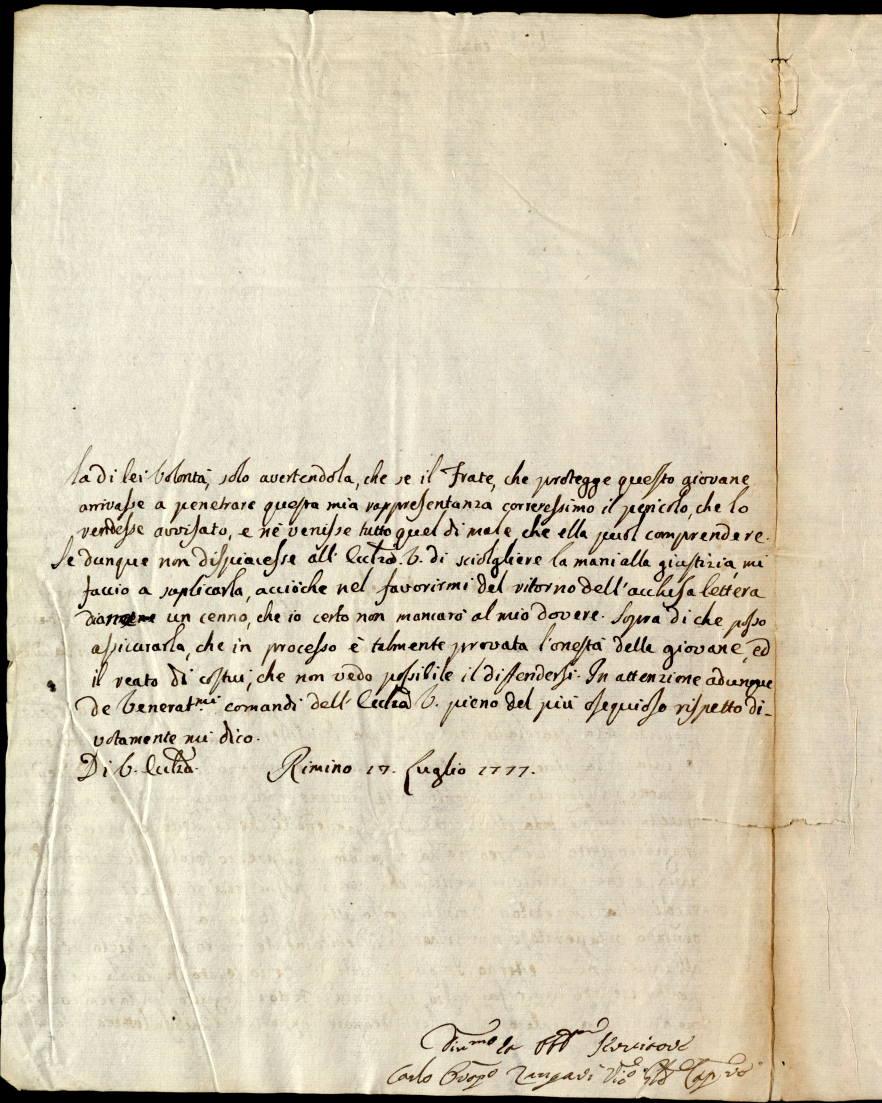 la di lei volontà, solo avertendola, che se il Frate, che protegge questo giovane
arrivasse a penetrare questa mia rappresentanza correressimo il pericolo, che lo
rendesse avvisato, e nè venisse tutto quel di male, che ella puol comprendere.
Se dunque non dispiacesse all' Ecc.za V. di sciolgliere la mani alla giustizia, mi
faccio a suplicarla, acciòche nel favorirmi del ritorno dell'acchiusa lettera
un cenno, che io certo non mancarò al mio dovere. Sopra di che posso
assicurarla, che in processo è talmente provata l'onestà della giovane, ed
il reato di costui, che non vedo possibile il diffendersi. In attenzione adunque
de Venerat.mi comandi dell' Ecc.za V. pieno del più ossequioso rispetto di-
votamente mi dico.
Di V. Ecc.za Rimino 17. Luglio 1777.
Servitore
Carlo